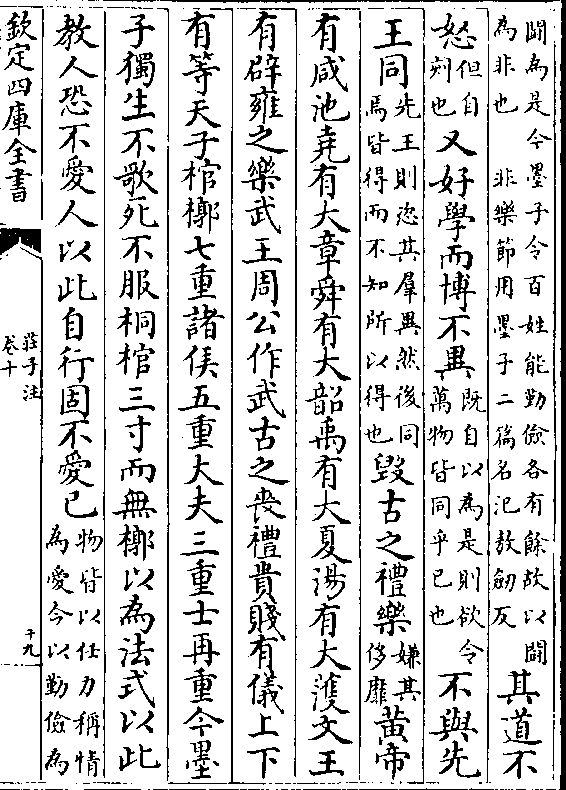 闘為是今墨子令百姓能勤儉各有餘故以闘為非也　非樂節用墨子二篇名汜敖劒反其道不
怒但自刻也又好學而博不異既自以為是則欲令萬物皆同乎已也不與先
王同先王則恣其羣異然後同焉皆得而不知所以得也毁古之禮樂嫌其侈靡黄帝
有咸池堯有大章舜有大韶禹有大夏湯有大濩文王
有辟雍之樂武王周公作武古之喪禮貴賤有儀上下
有等天子棺槨七重諸侯五重大夫三重士再重今墨
子獨生不歌死不服桐棺三寸而無槨以為法式以此
教人恐不愛人以此自行固不愛已物皆以任力稱情為愛今以勤儉為
欽定四庫全書
莊子注
卷十
十九